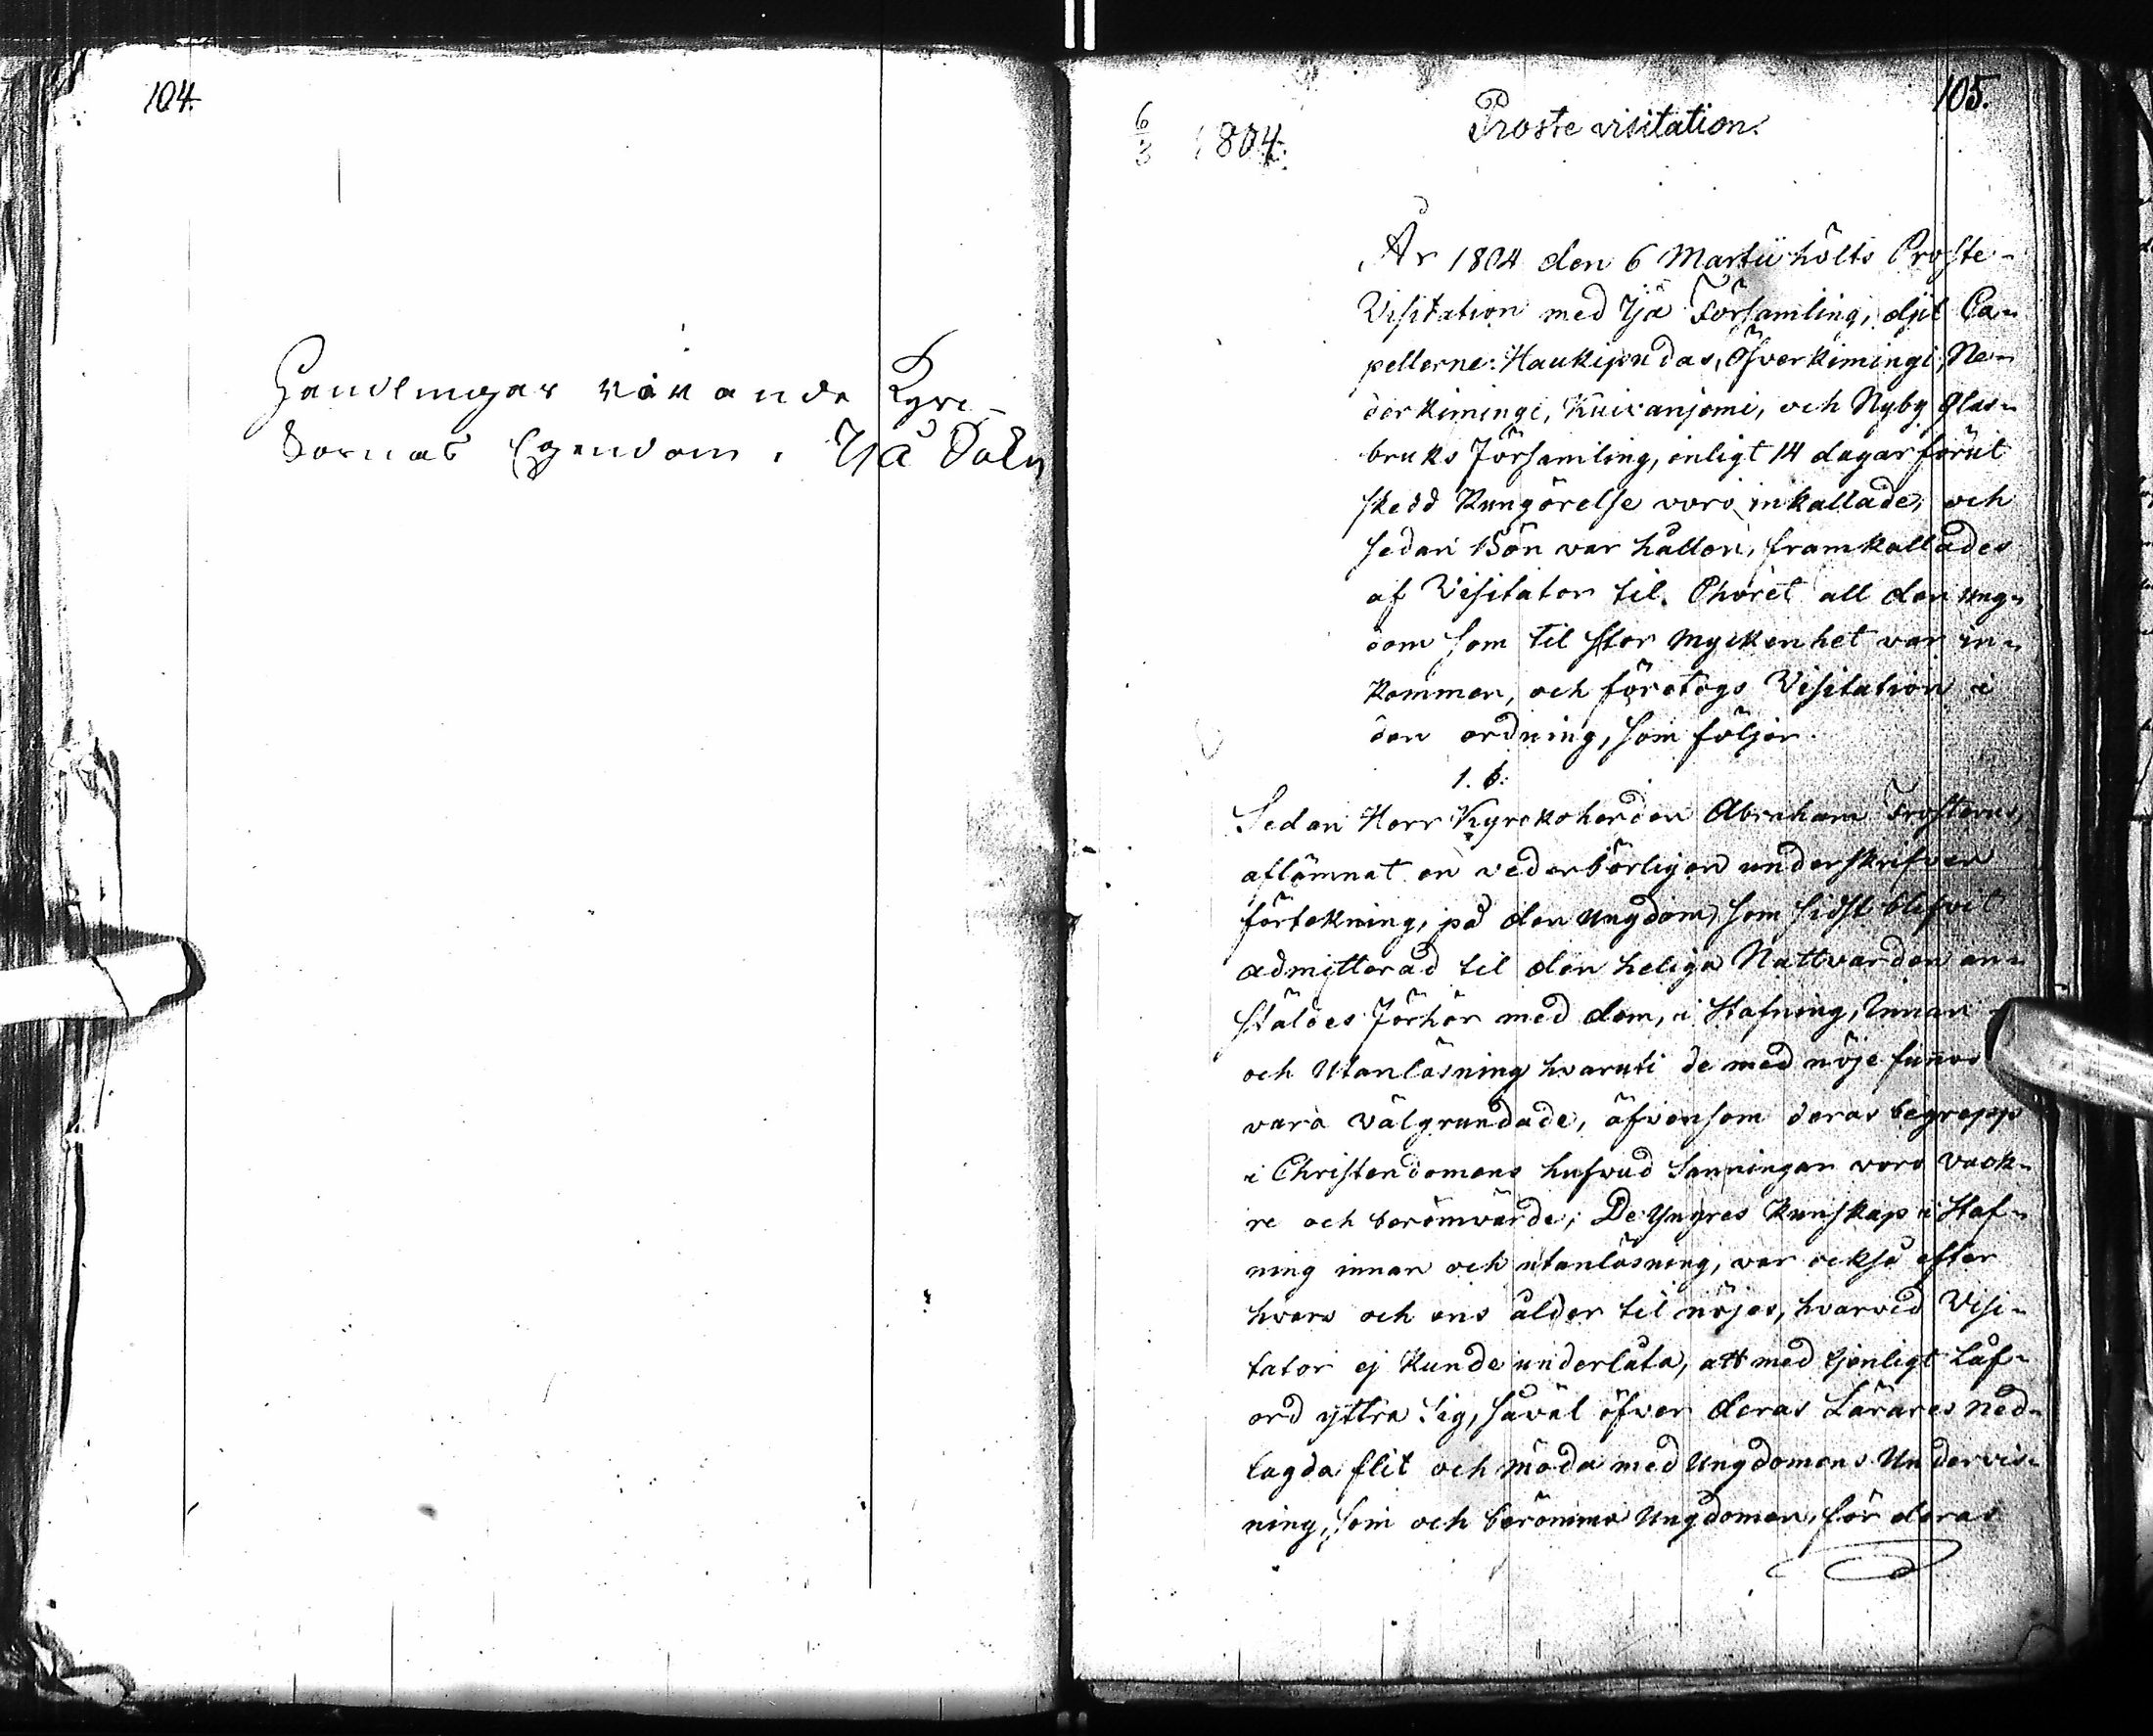 104.
Handlingar rörande Kyr-
kornas Egendom i Ijå Sokn
105.
6/3 1804.
Proste visitation.
År 1804 den 6 Martii hölts Proste-
Visitation med Ijå Församling, dit Ca-
pellerne: Haukipudas, Öfverkimingi, Ne-
derkimingi, Kuivanjemi, och Nyby Glas-
bruks Församling, enligt 14 dagar förut
skedd Kungörelse voro inkallade, och
sedan Bön var hållen, framkallades
af Visitator til Choret all den ung-
dom som til stor myckenhet var in-
kommen, och företogs Visitation i
den ordning, som följer.
1. §.
Sedan Herr Kyrckoherden Abraham Frosterus,
aflämnat en vederbörligen underskrifven
förtekning, på den Ungdom, som sidst blifvit
admitterad til den heliga Nattvarden an-
stäldes Förhör med dem, i Stafning, Innan
och Utanläsning hvaruti de med nöje funnos
vara välgrundade, äfvensom deras begrepp
i Christendomens hufvud Sanningar voro vack-
re och berömvärde; De Yngres Kunskap i Staf-
ning innan och utanläsning, var också efter
hvars och ens ålder til nöjes, hvarvid Visi-
tator ej kunde underlåta, att med tjenligt Låf-
ord yttra Sig, såväl öfver deras Lärares ned-
lagda flit och möda med Ungdomens Undervis-
ning, som och berömma Ungdomen, för deras